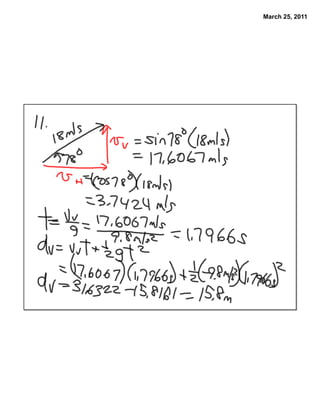 March 25, 2011
11.
18m/s
78°
v_v = sin78°(18m/s)
= 17.6067m/s
v_H = (cos78°)(18m/s)
= 3.7424 m/s
t = v_v/g = 17.6067m/s / 9.8m/s² = 1.7966s
d_v = v_v t + ½gt²
= (17.6067)(1.7966s) + ½(-9.8m/s²)(1.7966s)²
d_v = 31.6322 - 15.8161 = 15.8m